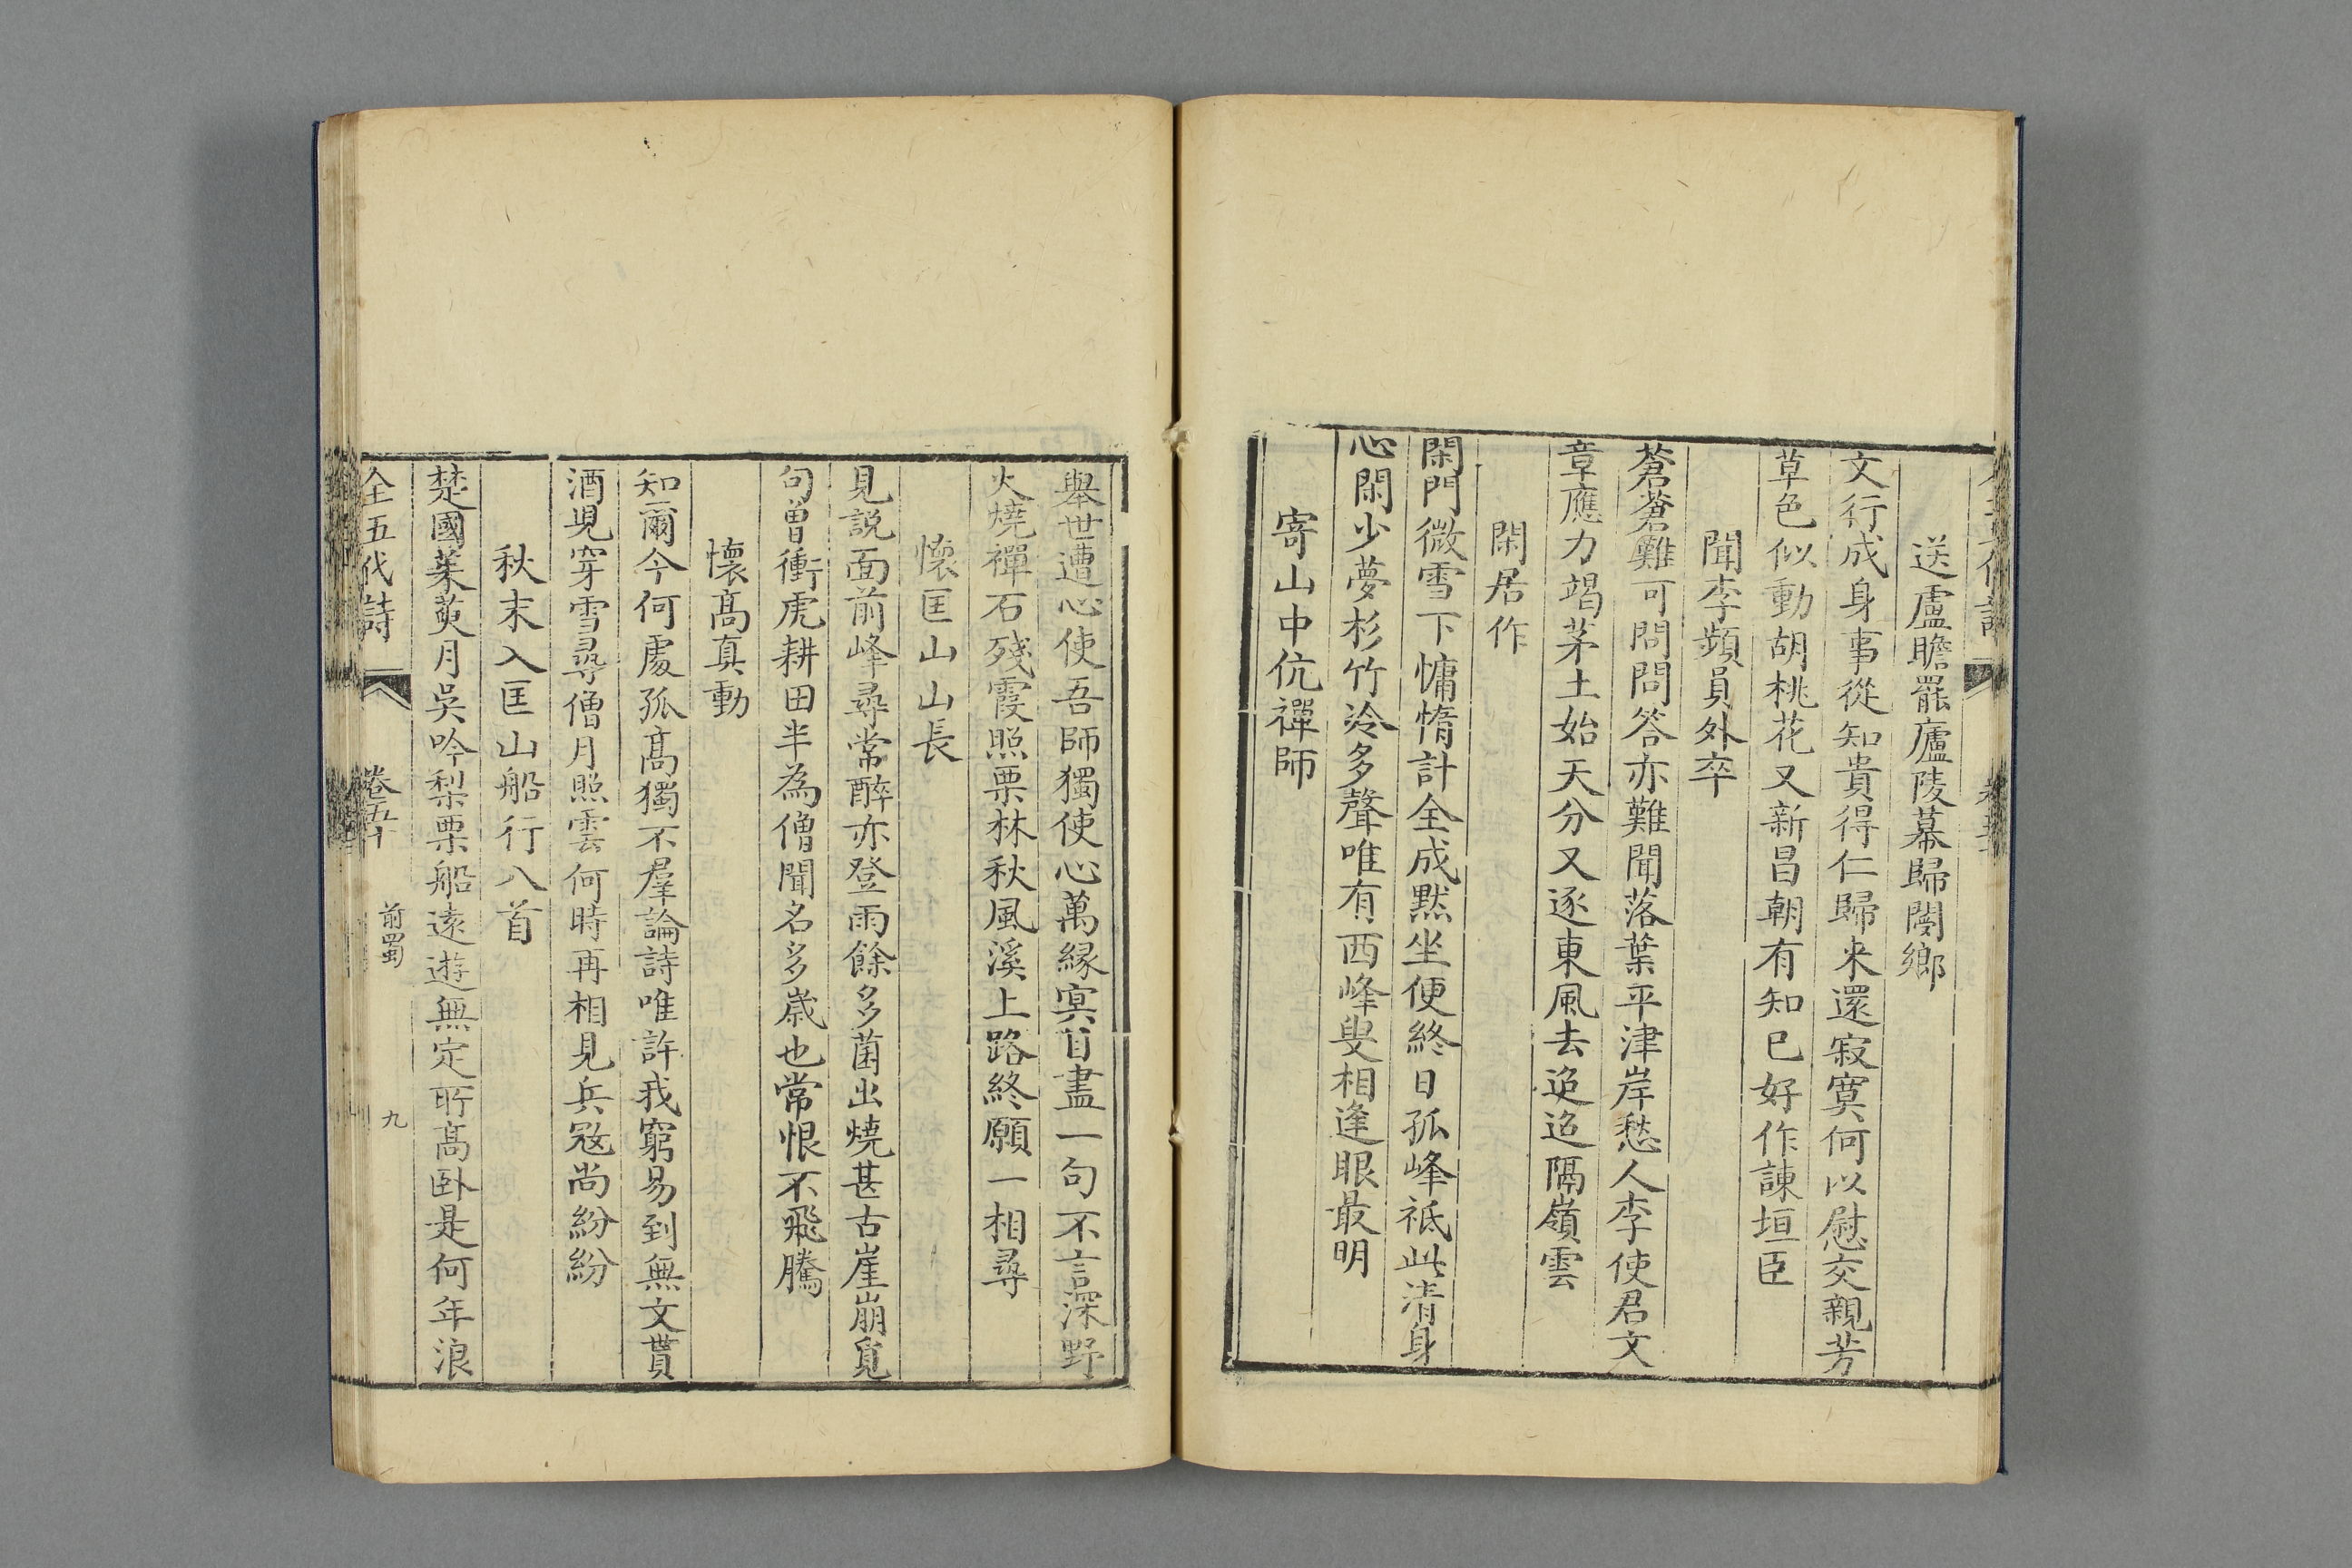 送盧瞻罷廬陵幕歸閿鄉
文行成身事從知貴得仁歸來還寂寞何以慰交親芳
草色似動胡桃花又新昌朝有知己好作諫垣臣
聞李頻員外卒
蒼蒼難可問問答亦難聞落葉平津岸愁人李使君文
章應力竭茅土始天分又逐東風去迢迢隔嶺雲
閑居作
閑門微雪下慵惰計全成默坐便終日孤峰祗此清身
心閑少夢杉竹冷多聲唯有西峰叟相逢眼最明
寄山中伉禪師
舉世遭心使吾師獨使心萬緣冥目盡一句不言深野
火燒禪石殘霞照栗林秋風溪上路終願一相尋
懷匡山山長
見說面前峰尋常醉亦登雨餘多菌出燒甚古崖崩覓
句曾衝虎耕田半為僧聞名多歲也常恨不飛騰
懷高真動
知爾今何處孤高獨不羣論詩唯許我窮易到無文貰
酒見穿雪尋僧月照雲何時再相見兵寇尚紛紛
秋末入匡山船行八首
楚國茱萸月吳吟梨栗船遠遊無定所高臥是何年浪
全五代詩 卷五十 前蜀 九